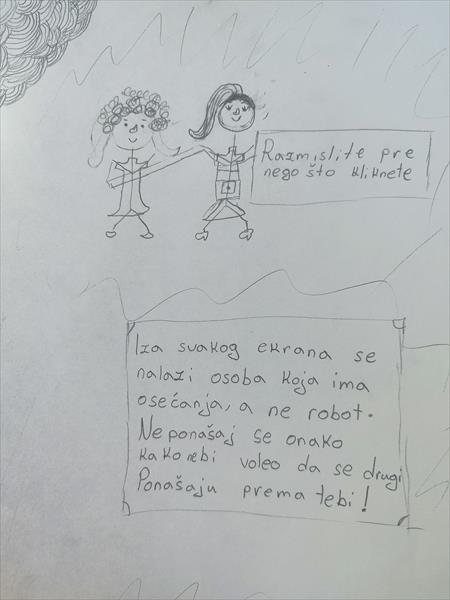 Razmislite pre
nego što kliknete
Iza svakog ekrana se
nalazi osoba koja ima
osećanja, a ne robot.
Ne ponašaj se onako
kako nebi voleo da se drugi
Ponašaju prema tebi!